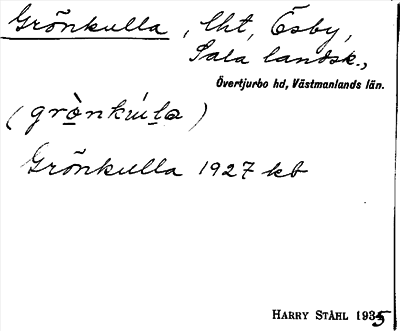 Grönkulla, lht, Ösby,
Sala landsk.,
Övertjurbo hd, Västmanlands län.
(grò̱nkúḻa)
Grönkulla 1927 kb
HARRY STÅHL 1935